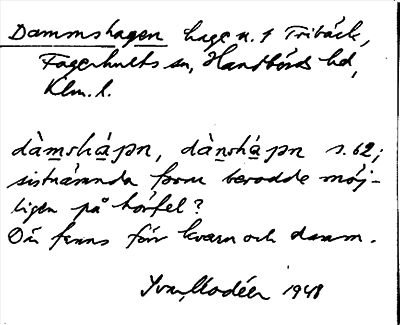 Dammshagen hage n. 1 Tribäck,
Fagerhults sn, Handbörds hd,
Klm. l.
dàmshápn, dànshápn s. 62;
sistnämnda form berodde möj-
ligen på hörfel?
Där fanns förr kvarn och damm.
Ivar Modéer 1948